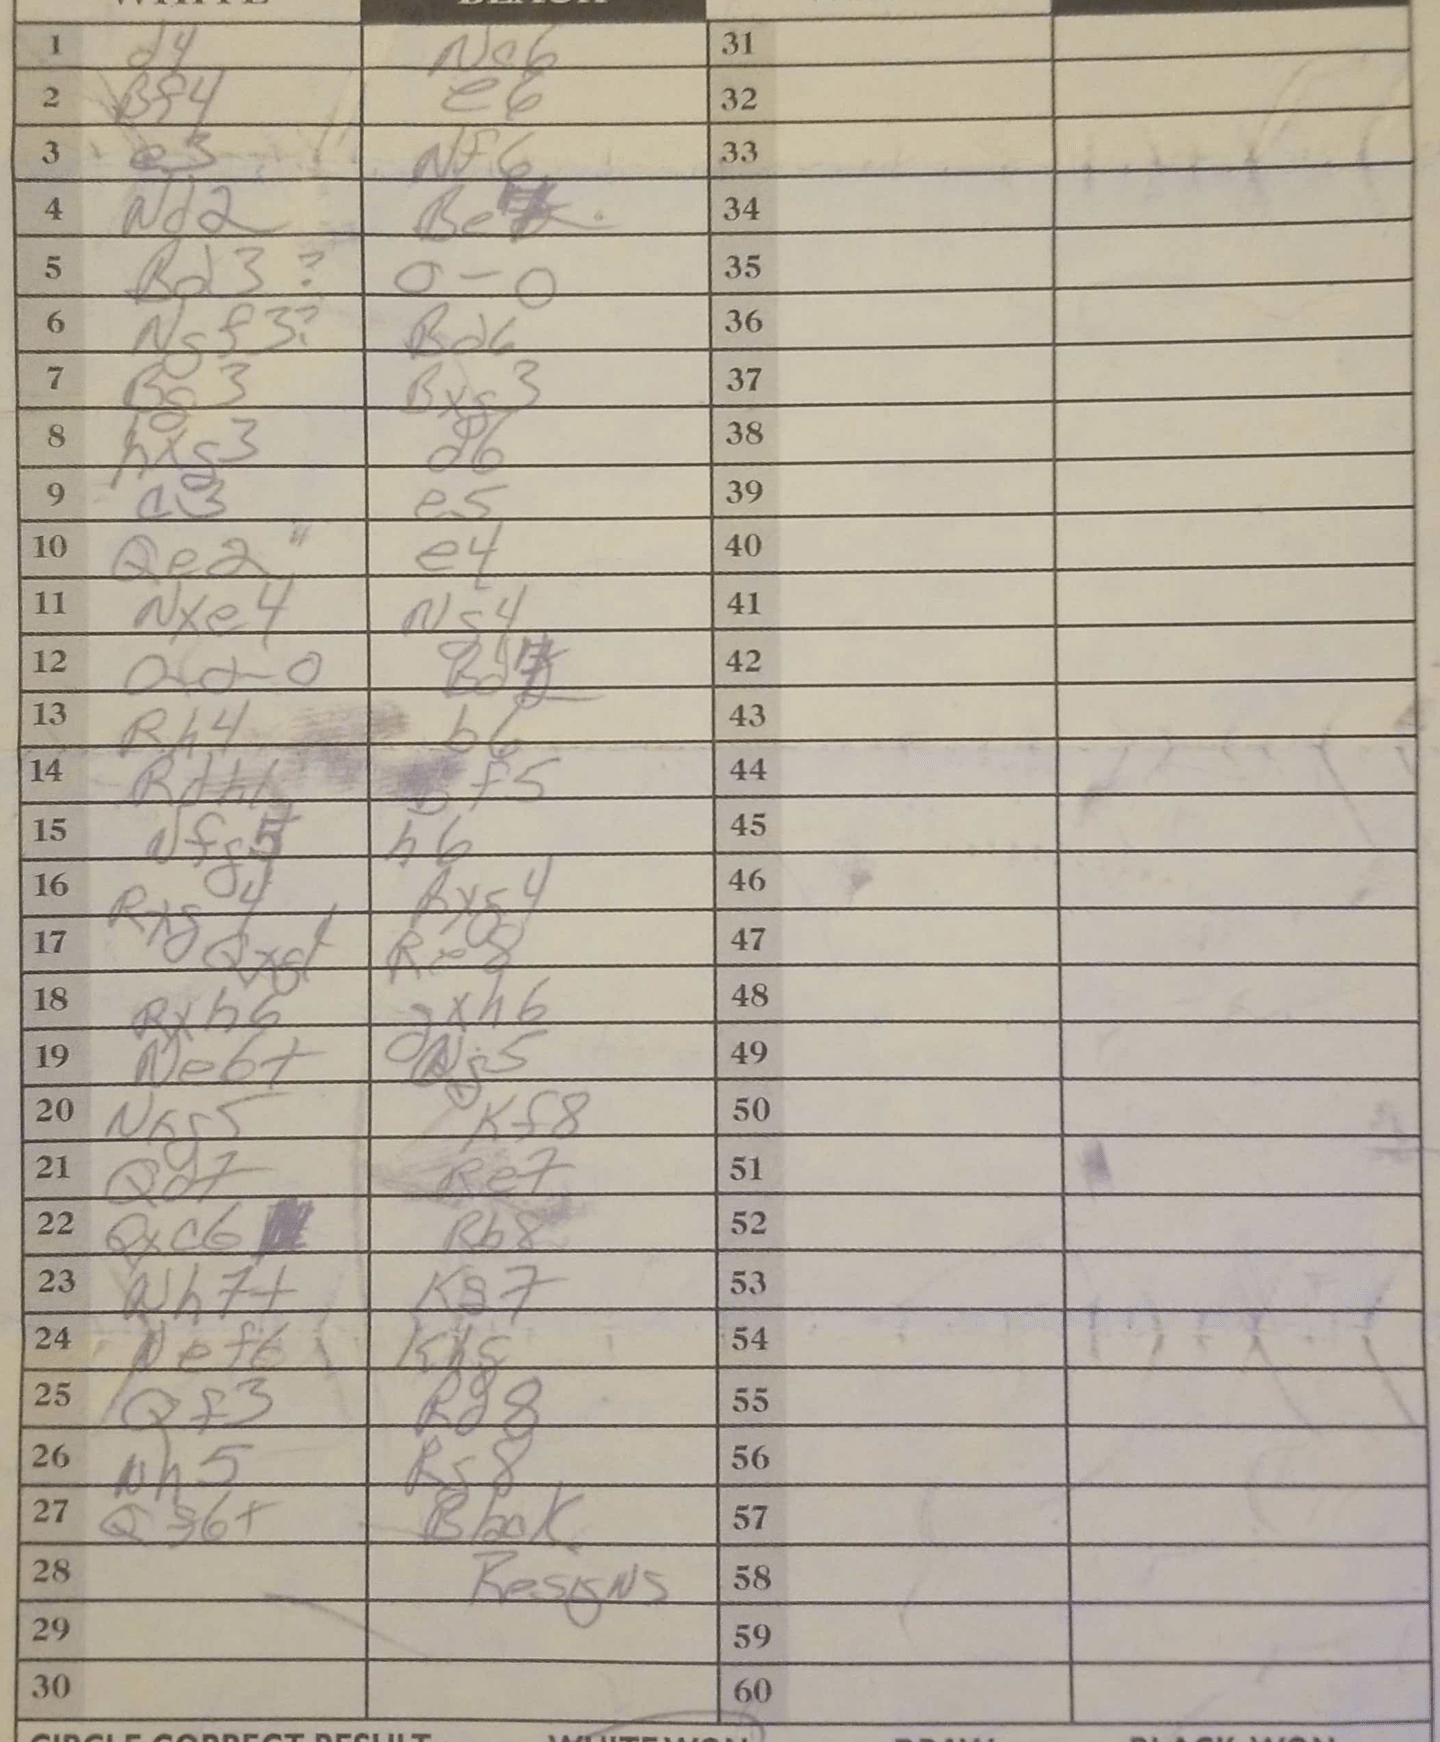 WHITE BLACK
1 d4 Nc6 31
2 Bf4 e6 32
3 e3 Nf6 33
4 Nd2 Be7 34
5 Bd3? 0-0 35
6 Ngf3? Bd6 36
7 Bg3 Bxg3 37
8 hxg3 d6 38
9 c3 e5 39
10 Qe2" e4 40
11 Nxe4 Ng4 41
12 0-0-0 Bd7 42
13 Rh4 b6 43
14 Rdh1 Bf5 44
15 Nfg5 h6 45
16 Rxg4 Bxg4 46
17 Qxg4 Re8 47
18 Rxh6 gxh6 48
19 Ne6+ Ng5 49
20 Nxg5 Kf8 50
21 Qd7 Re7 51
22 Qxc6 Rb8 52
23 Nh7+ Kg7 53
24 Nef6 Kh8 54
25 Qf3 Rd8 55
26 Nh5 Rg8 56
27 Qg6+ Black 57
28 Resigns 58
29 59
30 60
CIRCLE CORRECT RESULT WHITE WON DRAW BLACK WON